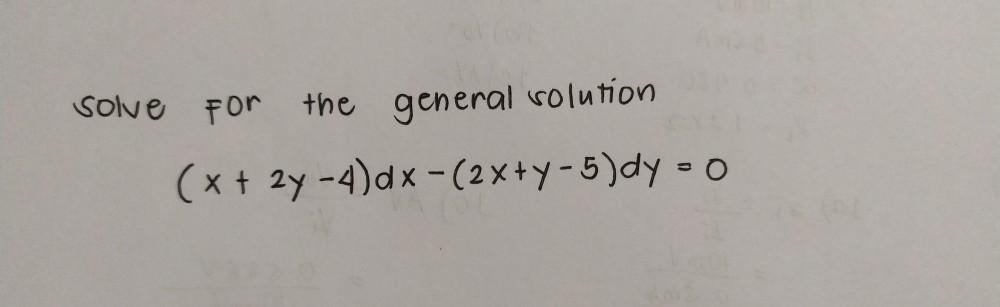 solve for the general solution
(x + 2y - 4)dx - (2x + y - 5)dy = 0